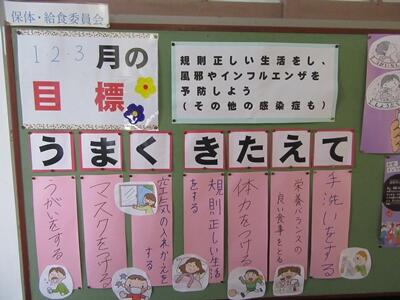 保体・給食委員会
12・3月の
目標
規則正しい生活をし、
風邪やインフルエンザを
予防しよう
(その他の感染症も)
うまくきたえて
うがいをする
マスクをつける
空気の入れかえを
する
規則正しい生活
をする
体力をつける
栄養バランスの
良い食事をとる
手洗いをする